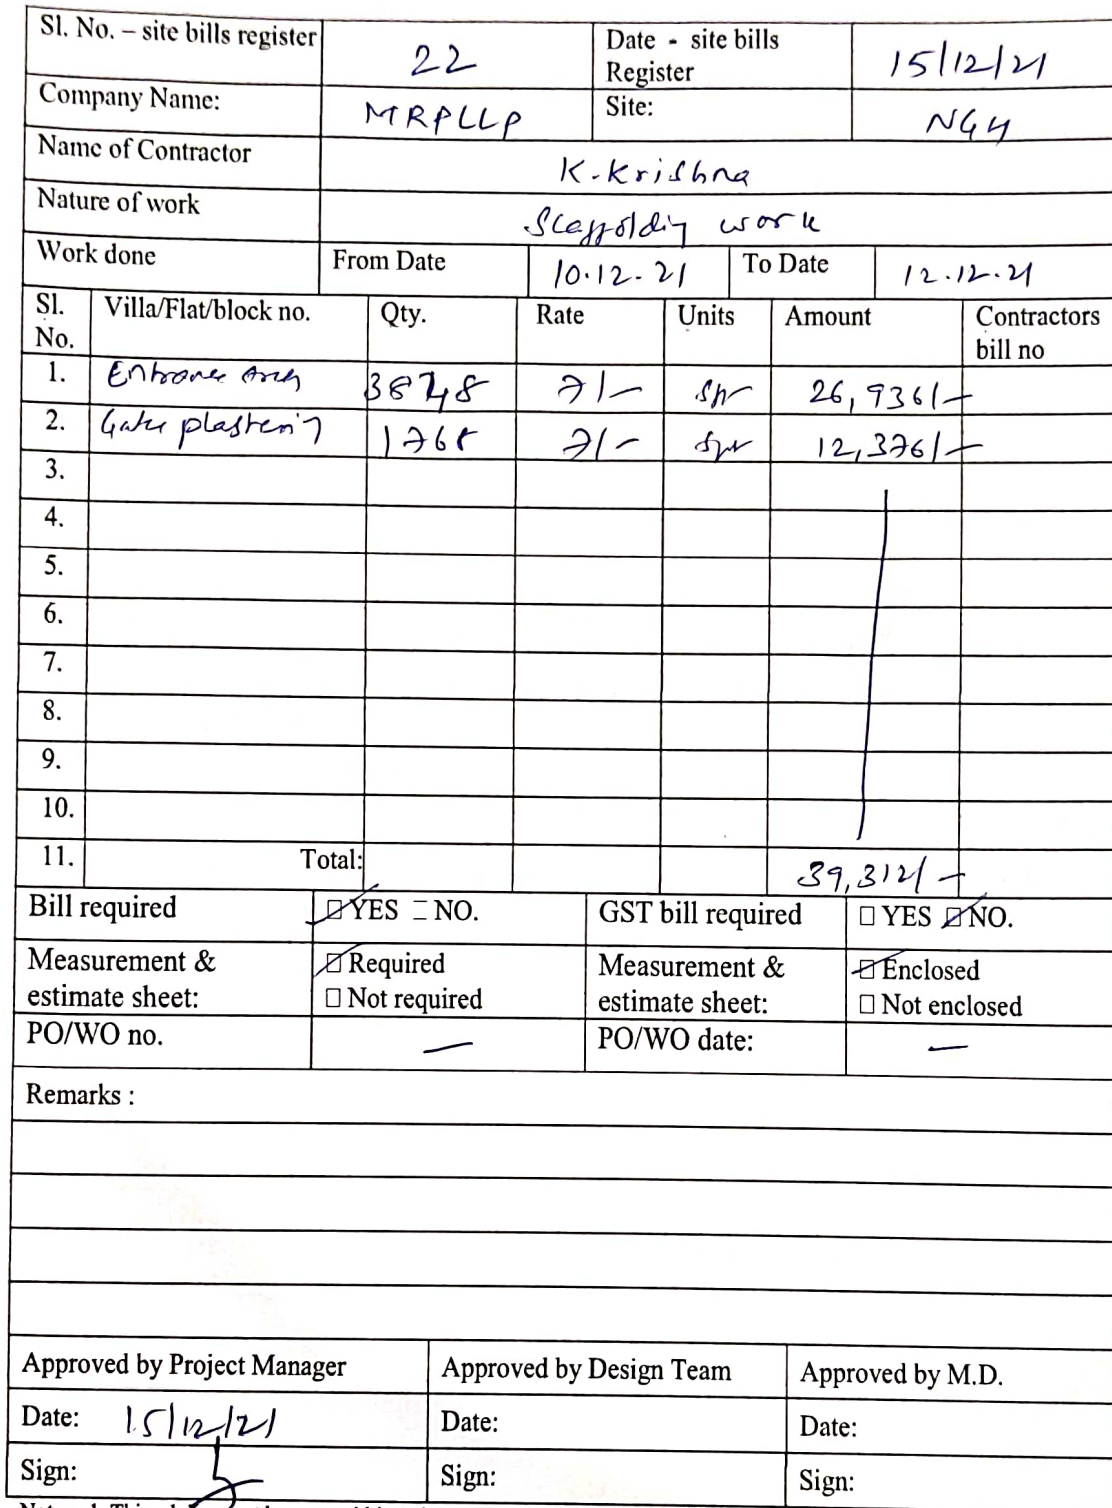 Sl. No. – site bills register 22 Date - site bills Register 15/12/21
Company Name: MRPLLP Site: NGH
Name of Contractor K. Krishna
Nature of work Scaffolding work
Work done From Date 10.12.21 To Date 12.12.21
Sl. No. Villa/Flat/block no. Qty. Rate Units Amount Contractors bill no
1. Entrance Arch 3848 7/- 26,936/-
2. Gate plastering 1768 7/- 12,376/-
3.
4.
5.
6.
7.
8.
9.
10.
11. Total: 39,312/-
Bill required ☑ YES ☐ NO. GST bill required ☐ YES ☑ NO.
Measurement & estimate sheet: ☑ Required Measurement & estimate sheet: ☑ Enclosed
☐ Not required ☐ Not enclosed
PO/WO no. — PO/WO date: —
Remarks :
Approved by Project Manager Approved by Design Team Approved by M.D.
Date: 15/12/21 Date: Date:
Sign: Sign: Sign: